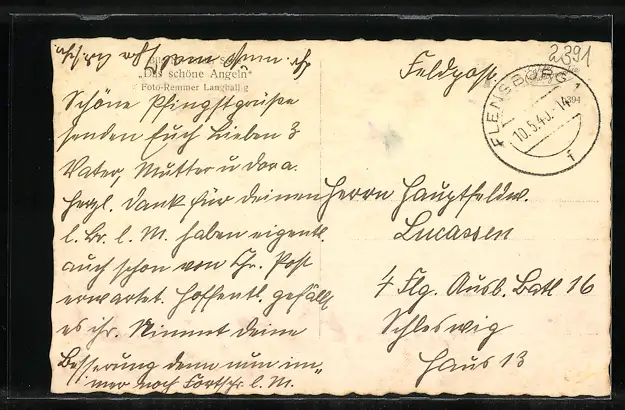 „Das schöne Angeln"
Foto-Remmer Langballig
Schöne Pfingstgrüße
senden Euch Lieben 3
Vater, Mutter u Dora.
Herzl. Dank für deinen
l. Br. l. M. haben eigentl.
auch schon von Ihr. Post
erwartet. Hoffentl. gefällt
es ihr. Nimmt deine
Besserung denn nun im„
mer noch Fortschr. l. M.
2391
Feldpost.
FLENSBURG 1
10.5.40.-14
Herrn Hauptfeldw.
Lucassen
4 Flg. Ausb. Batl 16
Schleswig
Haus 13